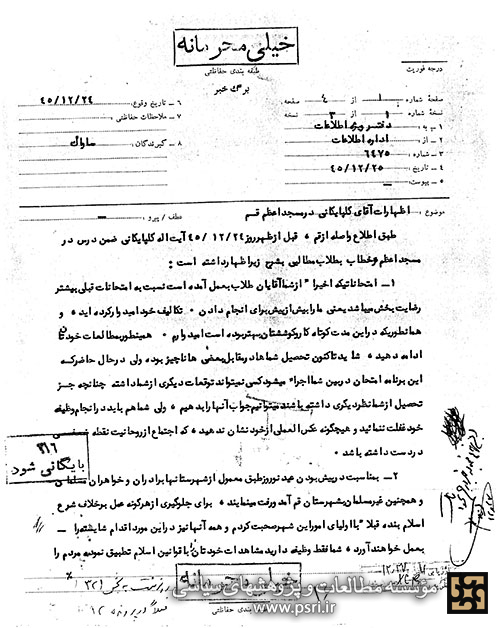 خیلی محرمانه
طبقه بندی حفاظتی
برگ خبر
درجه فوریت
صفحه شماره ۱ از ۴ صفحه
نسخه شماره ۱ از ۳ نسخه
۱ - به: دفتر ویژه اطلاعات
۲ - از: اداره اطلاعات
۳ - شماره: ۶۴۷۵
۴ - تاریخ: ۴۵/۱۲/۲۵
۵ - پیوست: -
۶ - تاریخ وقوع: ۴۵/۱۲/۲۴
۷ - ملاحظات حفاظتی:
۸ - گیرندگان: ساواک
موضوع: اظهارات آقای گلپایگانی در مسجد اعظم قم عطف / پیرو: -
طبق اطلاع واصله از قم ، قبل از ظهر روز ۴۵/۱۲/۲۴ آیت اله گلپایگانی ضمن درس در
مسجد اعظم و خطاب بطلاب مطالبی بشرح زیر اظهار داشته است :
۱ - امتحاناتیکه اخیرا از شما آقایان طلاب بعمل آمده است نسبت به امتحانات قبلی بیشتر
رضایت بخش میباشد یعنی ما را بیش از پیش برای انجام دادن تکالیف خود امیدوار کرده اید ، و
همانطوریکه در این مدت کوتاه کار و کوششتان بهتر بوده است امیدوارم ، همینطور مطالعات خود را
ادامه دهید ، شاید تاکنون تحصیل شماها در مقابل بعضی ها ناچیز بود ، ولی در حال حاضر که
این برنامه امتحان در بین شما اجراء میشود کسی نمیتواند توقعات دیگری از شما داشته چنانچه جز
تحصیل از شما نظر دیگری داشته باشند میتوانیم جواب آنها را بدهیم ، ولی شما هم باید در انجام وظیفه
خود غفلت ننمائید و هیچگونه عکس العملی از خود نشان ندهید ، که اجتماع از روحانیت نقطه
در دست داشته باشد .
۳۱۶
بایگانی شود
۲ - بمناسبت در پیش بودن عید نوروز طبق معمول از شهرستانها برادران و خواهران مسلمان
و همچنین غیر مسلمان بشهرستان قم آمد و رفت مینمایند ، برای جلوگیری از هرگونه عمل برخلاف شرع
اسلام بنده قبلا با اولیای امور این شهر صحبت کردم و همه آنها نیز در این مورد اقدام شایسته را -
بعمل خواهند آورد ، شما فقط وظیفه دارید مشاهدات خودتان با قوانین اسلام تطبیق نموده مردم را
خیلی محرمانه
طبقه بندی حفاظتی
مؤسسه مطالعات و پژوهشهای سیاسی
www.psri.ir